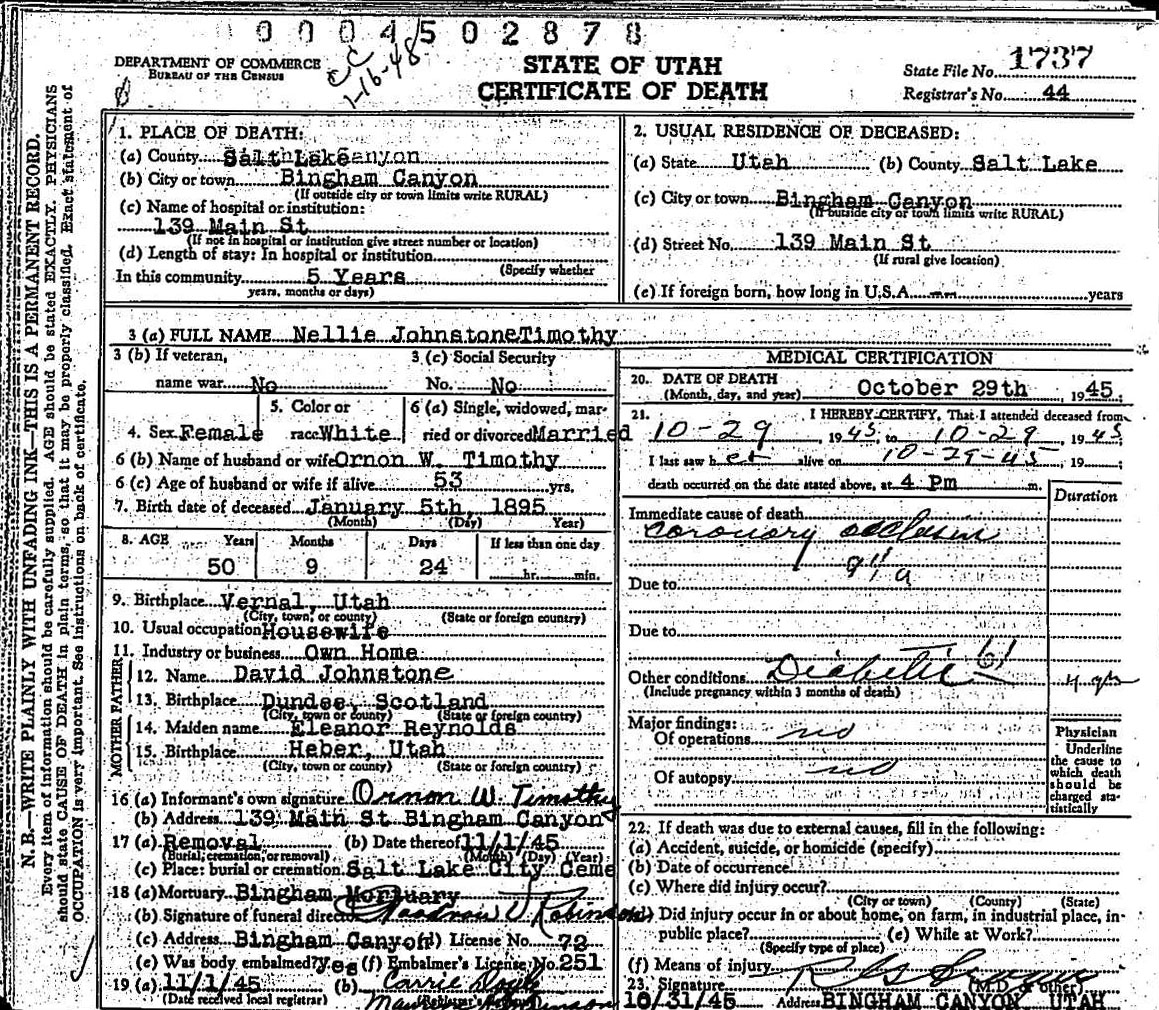 0 0 0 4 5 0 2 8 7 8
DEPARTMENT OF COMMERCE
BUREAU OF THE CENSUS
CC
1-16-48
STATE OF UTAH
CERTIFICATE OF DEATH
State File No. 1737
Registrar's No. 44
N.B.—WRITE PLAINLY WITH UNFADING INK—THIS IS A PERMANENT RECORD.
Every item of information should be carefully supplied. AGE should be stated EXACTLY. PHYSICIANS
should state CAUSE OF DEATH in plain terms, so that it may be properly classified. Exact statement of
OCCUPATION is very important. See instructions on back of certificate.
1. PLACE OF DEATH:
(a) County Salt Lake
(b) City or town Bingham Canyon
(If outside city or town limits write RURAL)
(c) Name of hospital or institution:
139 Main St
(If not in hospital or institution give street number or location)
(d) Length of stay: In hospital or institution
(Specify whether
In this community 5 Years
years, months or days)
2. USUAL RESIDENCE OF DECEASED:
(a) State Utah (b) County Salt Lake
(c) City or town Bingham Canyon
(If outside city or town limits write RURAL)
(d) Street No. 139 Main St
(If rural give location)
(e) If foreign born, how long in U.S.A. -- years
3 (a) FULL NAME Nellie JohnstoneTimothy
3 (b) If veteran,
name war No
3 (c) Social Security
No. No
4. Sex Female
5. Color or
race White
6 (a) Single, widowed, mar-
ried or divorced Married
6 (b) Name of husband or wife Ornon W. Timothy
6 (c) Age of husband or wife if alive 53 yrs.
7. Birth date of deceased January 5th, 1895
(Month) (Day) Year)
8. AGE Years Months Days If less than one day
50 9 24 hr. min.
9. Birthplace Vernal, Utah
(City, town, or county) (State or foreign country)
10. Usual occupation Housewife
11. Industry or business Own Home
FATHER
12. Name David Johnstone
13. Birthplace Dundee, Scotland
(City, town or county) (State or foreign country)
MOTHER
14. Maiden name Eleanor Reynolds
15. Birthplace Heber, Utah
(City, town or county) (State or foreign country)
16 (a) Informant's own signature Ornon W. Timothy
(b) Address 139 Main St Bingham Canyon
17 (a) Removal (b) Date thereof 11/1/45
(Burial, cremation, or removal) (Month) (Day) (Year)
(c) Place: burial or cremation Salt Lake City Ceme
18 (a) Mortuary Bingham Mortuary
(b) Signature of funeral director Woodrow V Robinson
(c) Address Bingham Canyon (d) License No. 72
(e) Was body embalmed? Yes (f) Embalmer's License No. 251
19 (a) 11/1/45 (b) Carrie Doyle
(Date received local registrar)
MEDICAL CERTIFICATION
20. DATE OF DEATH
(Month, day, and year) October 29th 1945
21. I HEREBY CERTIFY, That I attended deceased from
10-29, 1945, to 10-29, 1945;
I last saw her alive on 10-29-45, 19 ;
death occurred on the date stated above, at 4 Pm m.
Duration
Immediate cause of death
coronary occlusion
94a
Due to
Due to
Other conditions Diabetic 61 4 yrs
(Include pregnancy within 3 months of death)
Major findings:
Of operations no
Of autopsy no
Physician
Underline
the cause to
which death
should be
charged sta-
tistically
22. If death was due to external causes, fill in the following:
(a) Accident, suicide, or homicide (specify)
(b) Date of occurrence
(c) Where did injury occur?
(City or town) (County) (State)
(d) Did injury occur in or about home, on farm, in industrial place, in
public place? (e) While at Work?
(Specify type of place)
(f) Means of injury
23. Signature
(M.D. or other)
10/31/45 Address BINGHAM CANYON, UTAH